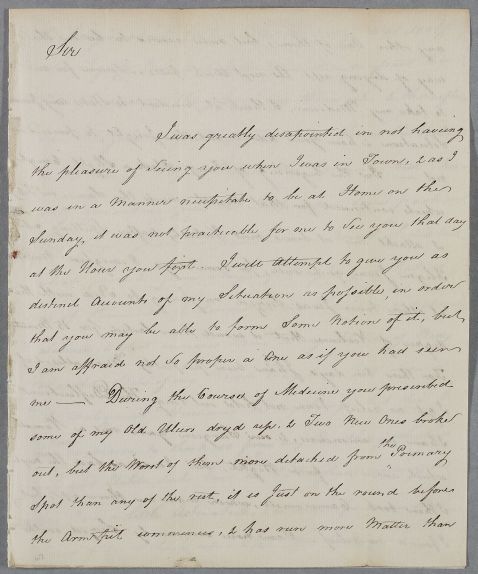 Sir
I was greatly disapointed in not haveing
the pleasure of Seeing you when I was in Town, & as I
was in a manner necessitate to be at Home on the
Sunday, it was not practicable for me to See you that day
at the Hour you I will Attempt to give you as
distinct Accounts of my Scituation as possible, in order
that you may be able to form Some Notion of it, but
I am affraid not So proper a One as if you had seen
me — During the Course of Medicine you prescribed
some of my Old Ulcers dryd up, & Two New Ones broke
out, but the Worst of them more detached from the Primary
Spot than any of the rest, it is Just on the round before
the Arm pit commences, & has run more Matter than